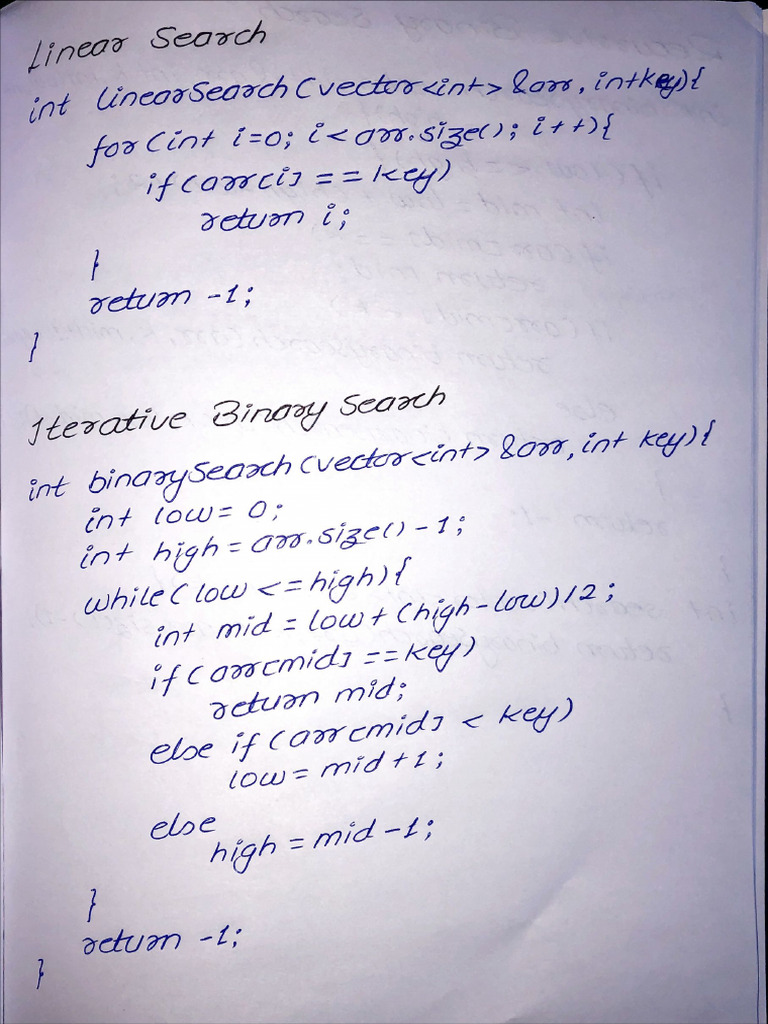 Linear Search
int linearSearch(vector<int> &arr, int key){
for(int i=0; i<arr.size(); i++){
if(arr[i] == key)
return i;
}
return -1;
}
Iterative Binary Search
int binarySearch(vector<int> &arr, int key){
int low = 0;
int high = arr.size() - 1;
while(low <= high){
int mid = low + (high-low)/2;
if(arr[mid] == key)
return mid;
else if(arr[mid] < key)
low = mid + 1;
else
high = mid - 1;
}
return -1;
}